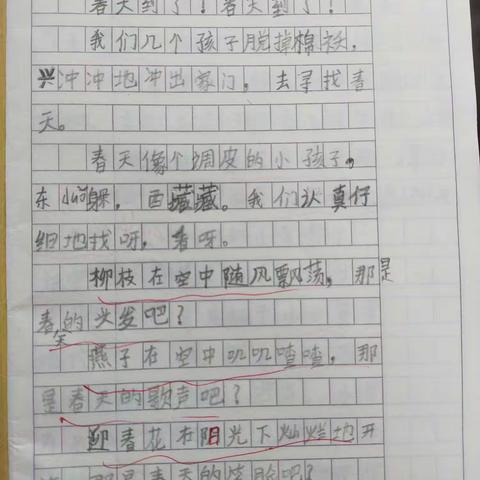 春天到了！春天到了！
我们几个孩子脱掉棉袄，
兴冲冲地冲出家门，去寻找春
天。
春天像个调皮的小孩子，
东duǒ躲，西藏藏。我们认真仔
细地找呀，看呀。
柳枝在空中随风飘荡，那是
春天的头发吧？
燕子在空中叽叽喳喳，那
是春天的歌声吧？
迎春花在阳光下灿烂地开
那是春天的笑脸吧？